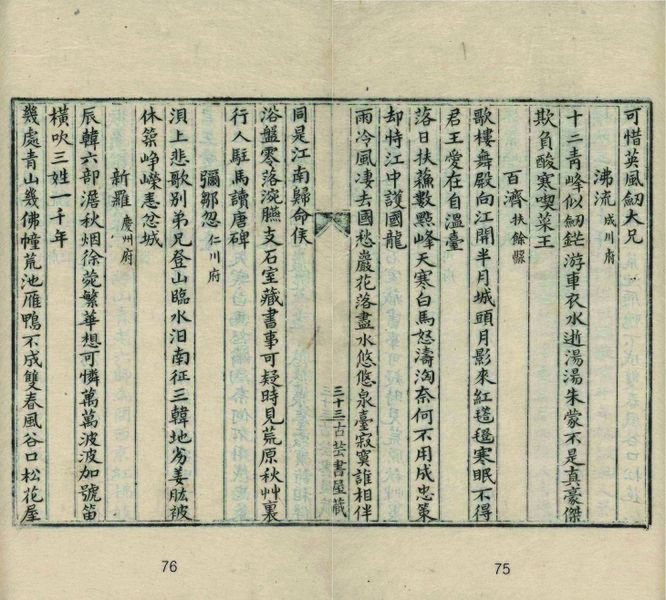 可惜英風劒大兄
沸流 成川府
十二青峰似劒鋩游車衣水逝湯湯朱蒙不是真豪傑
欺負酸寒喫菜王
百濟 扶餘縣
歌樓舞殿向江開半月城頭月影來紅毾㲪寒眠不得
君王愛在自温臺
落日扶蘓數點峰天寒白馬怒濤淘奈何不用成忠策
却恃江中護國龍
雨冷風凄去國愁巖花落盡水悠悠泉臺寂寞誰相伴
三十三古芸書屋藏
同是江南歸命侯
浴盤零落涴臙支石室藏書事可疑時見荒原秋艸裏
行人駐馬讀唐碑
彌鄒忽 仁川府
浿上悲歌别弟兄登山臨水汨南征三韓地劣姜肱被
休築崢嶸恚忿城
新羅 慶州府
辰韓六部澹秋烟徐菀繁華想可憐萬萬波波加號笛
橫吹三姓一千年
幾處青山幾佛幢荒池雁鴨不成雙春風谷口松花屋
75
76